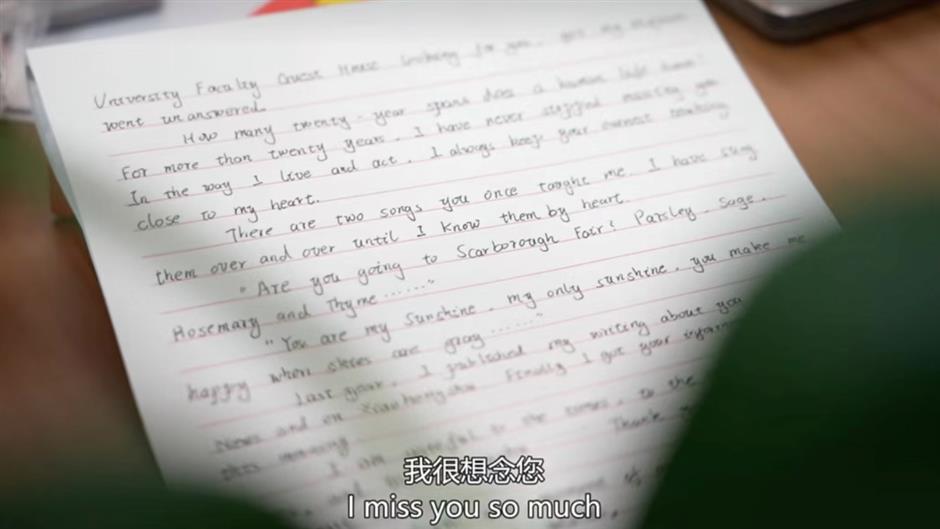 University Faculty Guest House looking for you, but my
went unanswered.
How many twenty-year spans does a human life have?
For more than twenty years, I have never stopped missing you
In the way I live and act, I always keep your earnest teaching
close to my heart.
There are two songs you once taught me. I have sung
them over and over until I know them by heart.
"Are you going to Scarborough Fair? Parsley, Sage,
Rosemary and Thyme......"
"You are my sunshine, my only sunshine, you make me
happy when skies are gray......"
Last year, I published my writing about you
News and on Xiaohongshu Finally I got your
this morning.
I am grateful to the times, to the
Thank
我很想念您
I miss you so much